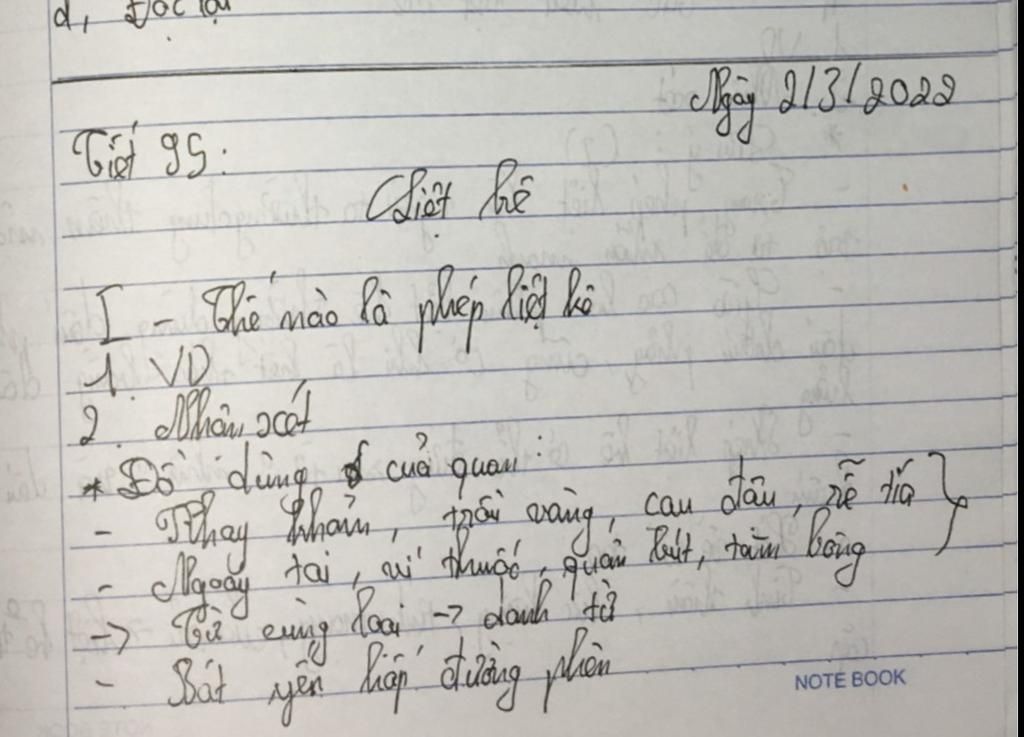 d, Đọc lại
Ngày 2/3/2022
Tiết 95:
Liệt kê
I - Thế nào là phép liệt kê
1. VD
2. Nhận xét
* Đồ dùng của quan:
- Khay khảm, trầu vàng, cau đậu, rễ tía
- Ngoáy tai, ví thuốc, quản bút, tăm bông
-> Từ cùng loại -> danh từ
- Bát yến hấp đường phèn
NOTE BOOK